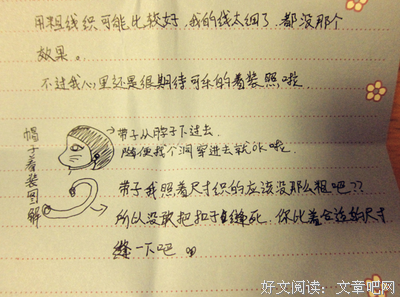 用粗线织可能比较好,我的线太细了,都没那个
效果。
不过我心里还是很期待可乐的着装照啦
帽子着装图解
带子从脖子下过去
随便找个洞穿进去就ok啦.
带子我照着尺寸织的应该没那么粗吧??
所以没敢把扣子缝死,你比着合适的尺寸
缝一下吧
好文阅读:文章吧网